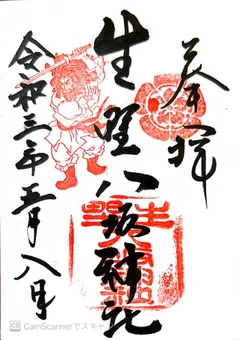 奉拝
生野八坂神社
令和三年五月八日
CS CamScannerでスキャ